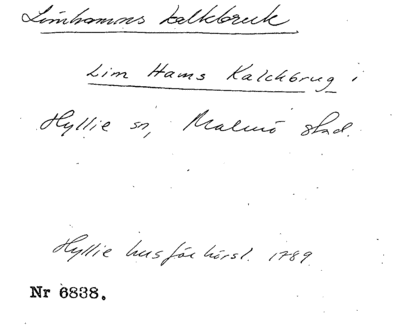 Limhamns kalkbruk
Lim Hams Kalckbrug i
Hyllie sn, Malmö stad.
Hyllie husförhörsl. 1789
Nr 6838.